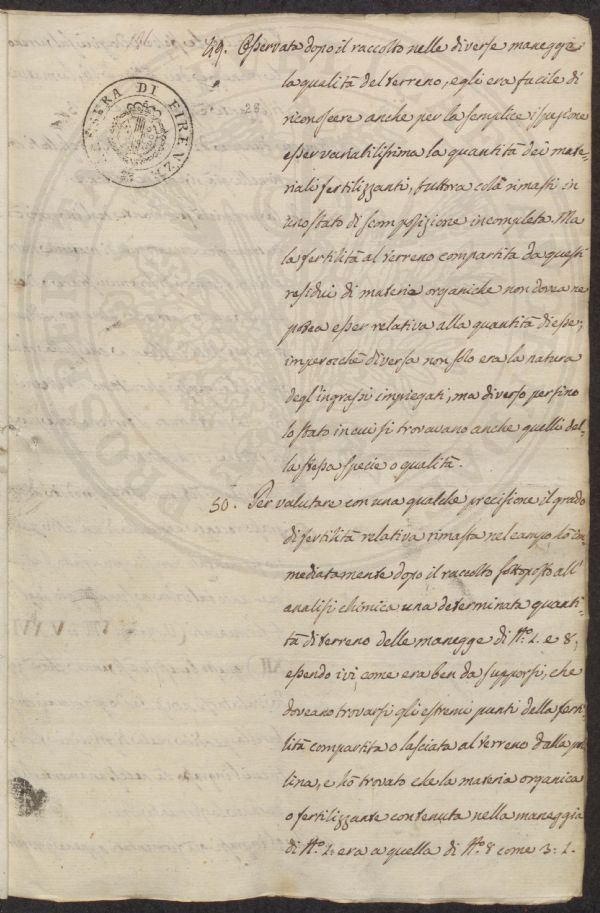 49. Osservata dopo il raccolto nelle diverse maneggie
la qualità del terreno, egli era facile di
28
riconoscere anche per la semplice ispezione
esser variatilissima la quantità dei mate-
riali fertilizzanti, tuttora colà rimasti in
uno stato di scomposizione incompleta. Ma
la fertilità al terreno compartita da questi
residui di materie organiche non dovea ne
potea esser relativa alla quantità di esse;
imperocchè diversa non solo era la natura
degl'ingrassi impiegati, ma diverso perfino
lo stato in cui si trovavano anche quelli del-
la stessa specie o qualità.
50. Per valutare con una qualche precisione il grado
di fertilità relativa rimasta nel campo hò im
mediatamente dopo il raccolto sottoposto all'
analisi chimica una determinata quanti-
tà di terreno delle manegge di No. 1. e 8;
essendo ivi come era ben da supporsi, che
doveano trovarsi gli estremi punti della ferti-
lità compartita o lasciata al terreno dalla
e hò trovato che la materia organica
o fertilizzante contenuta nella maneggia
di No. 1. era a quella di No. 8 come 3. 1.
DI FIRENZE